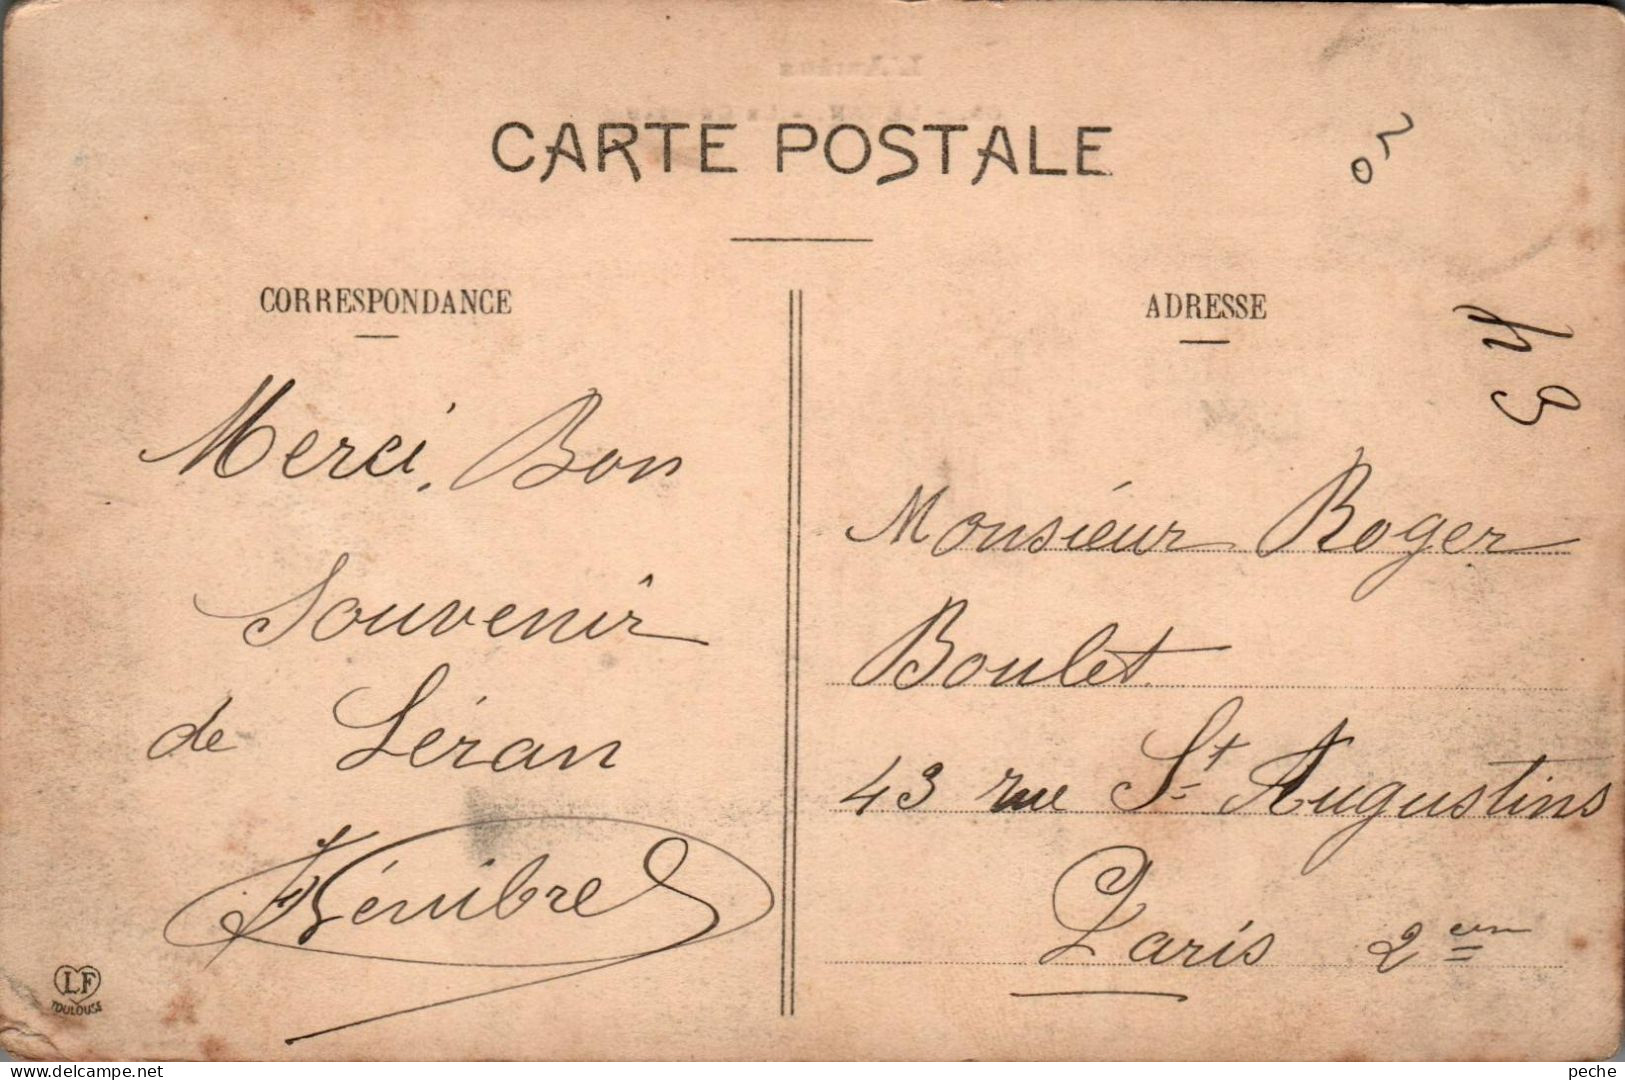 CARTE POSTALE
20
CORRESPONDANCE
Merci. Bon
Souvenir
de Léran
LF
TOULOUSE
ADRESSE
h 9
Monsieur Roger
Boulet
43 rue St Augustins
Paris 2em
www.delcampe.net
peche